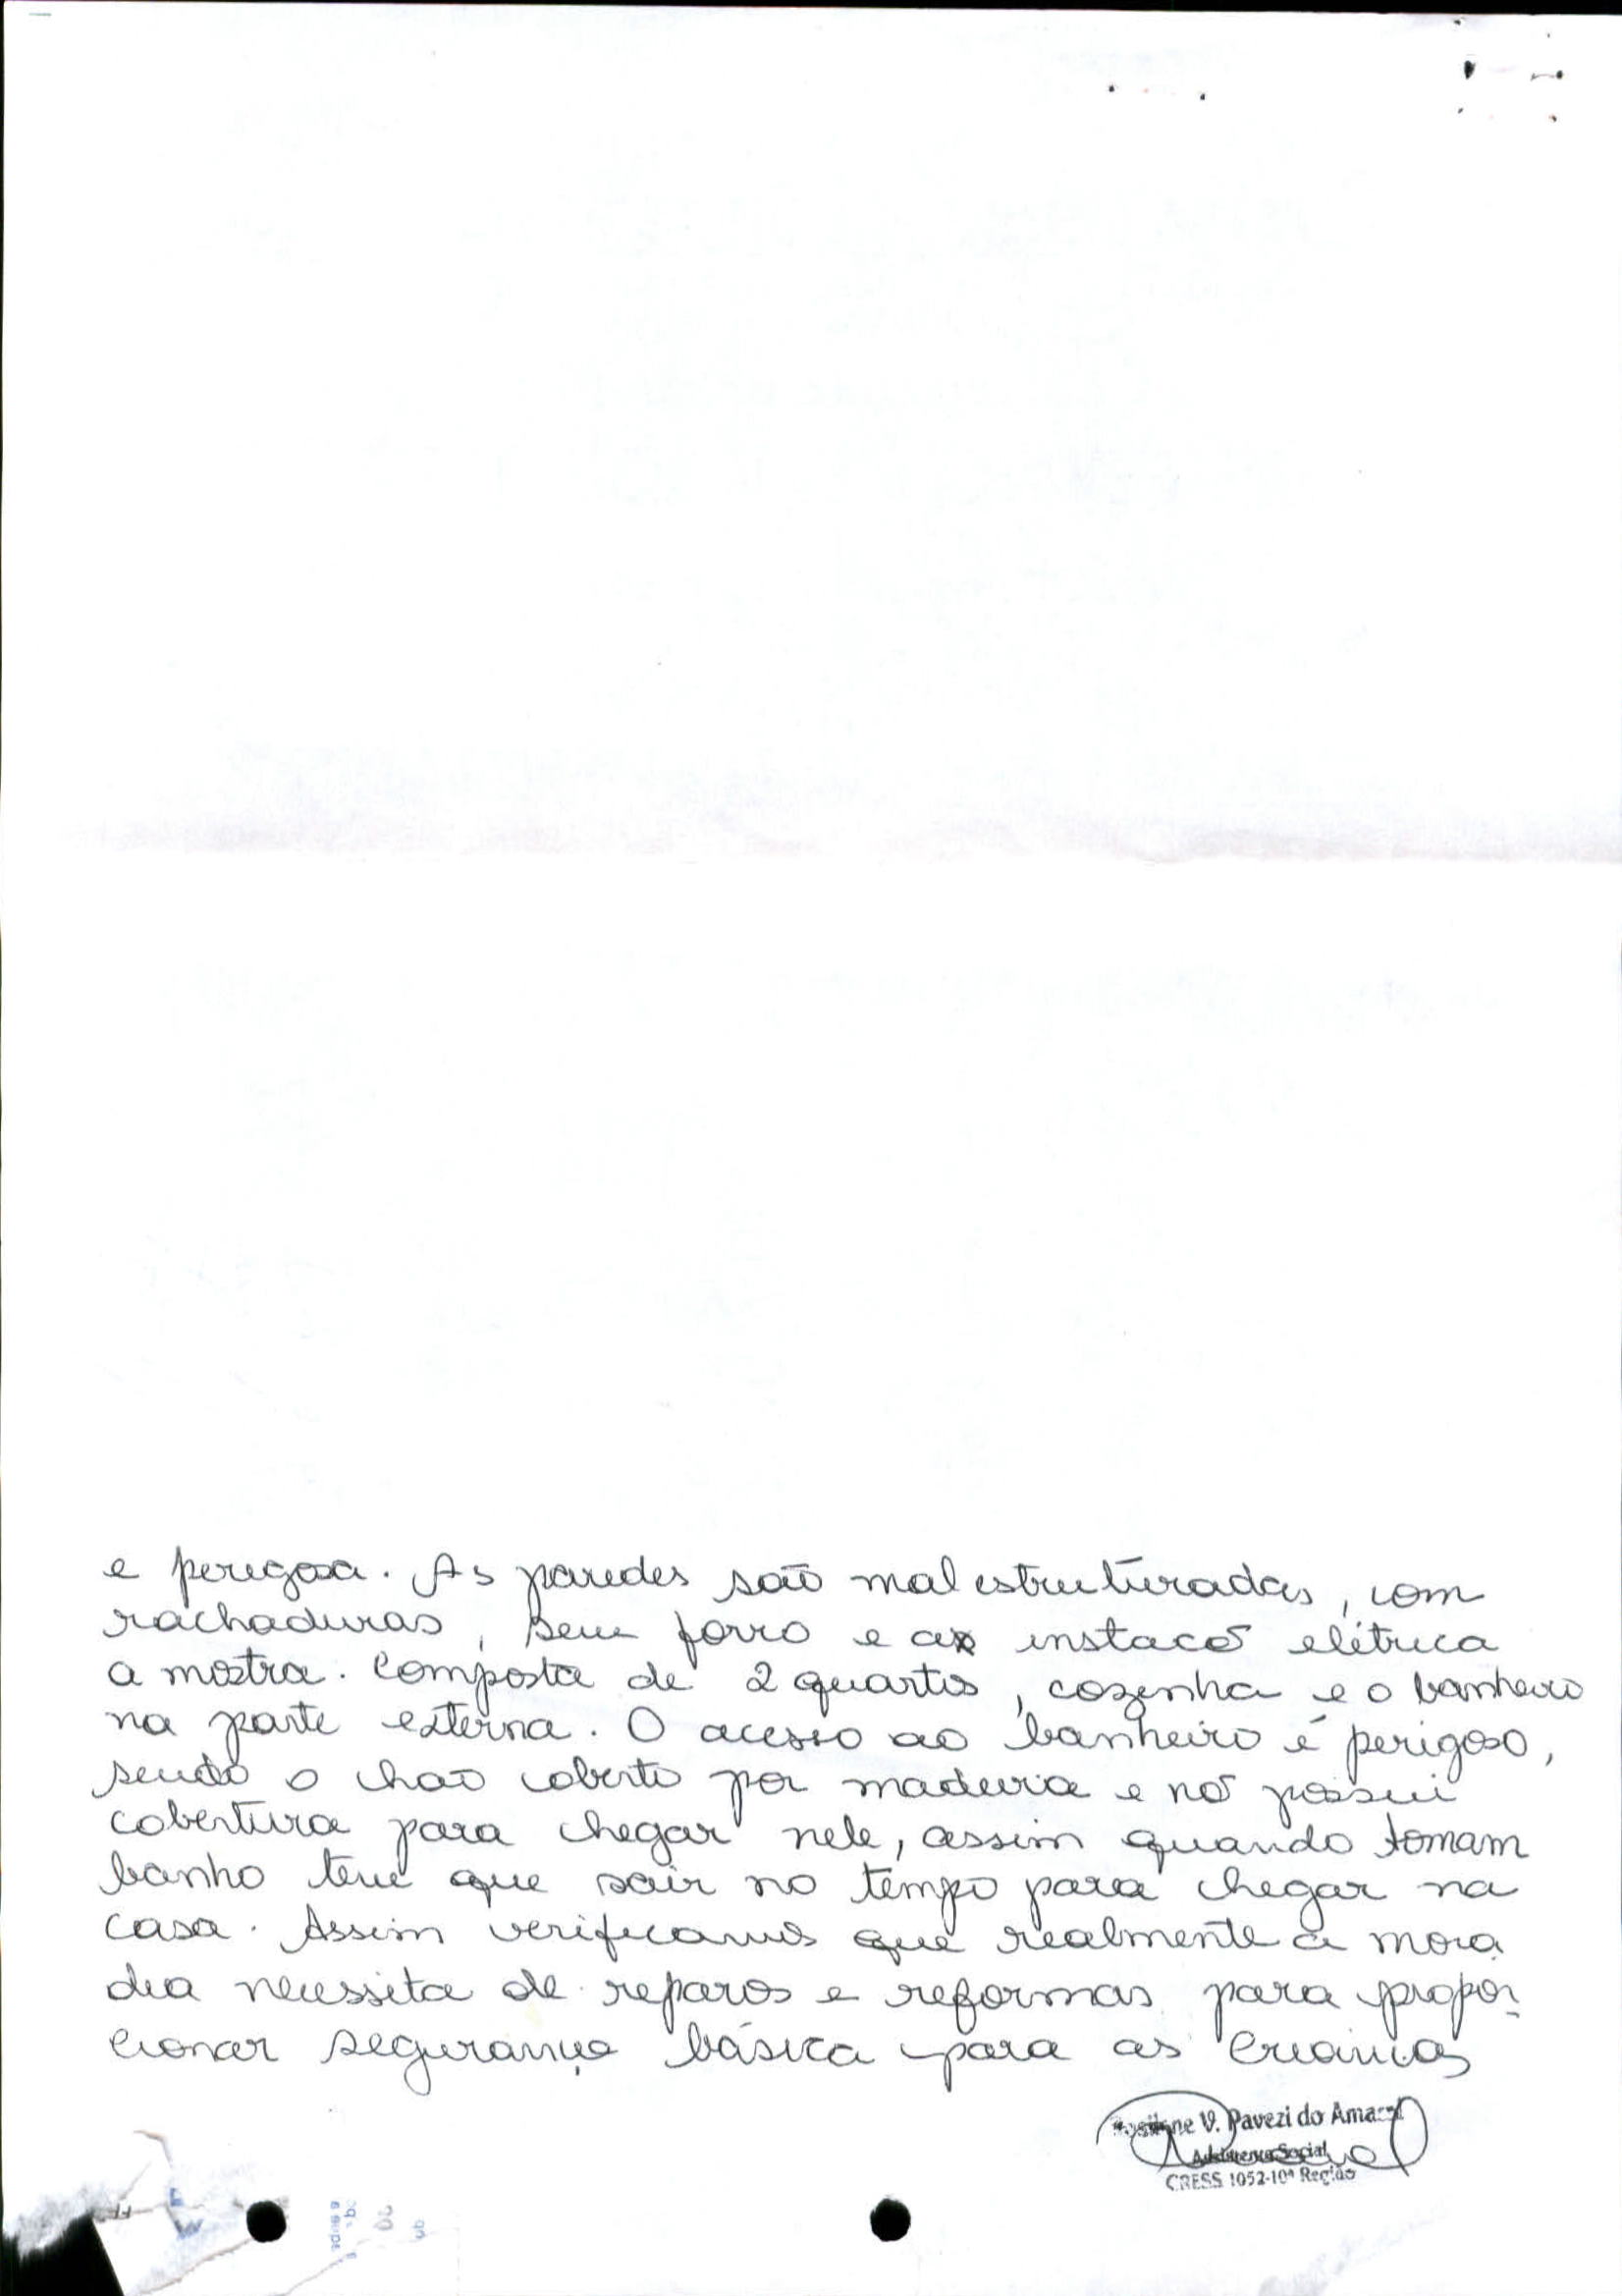 e perigosa. As paredes são mal estruturadas, com
rachaduras, sem forro e a instacõ elétrica
a mostra. Composta de 2 quartos, cozinha e o banheiro
na parte externa. O acesso ao banheiro é perigoso,
sendo o chão coberto por madeira e nõ possui
cobertura para chegar nele, assim quando tomam
banho tem que sair no tempo para chegar na
casa. Assim verificamos que realmente a mora
dia necessita de reparos e reformas para propor
cionar segurança básica para as crianças
V. Pavezi do Amaral
Assistente Social
CRESS 1052-10ª Região